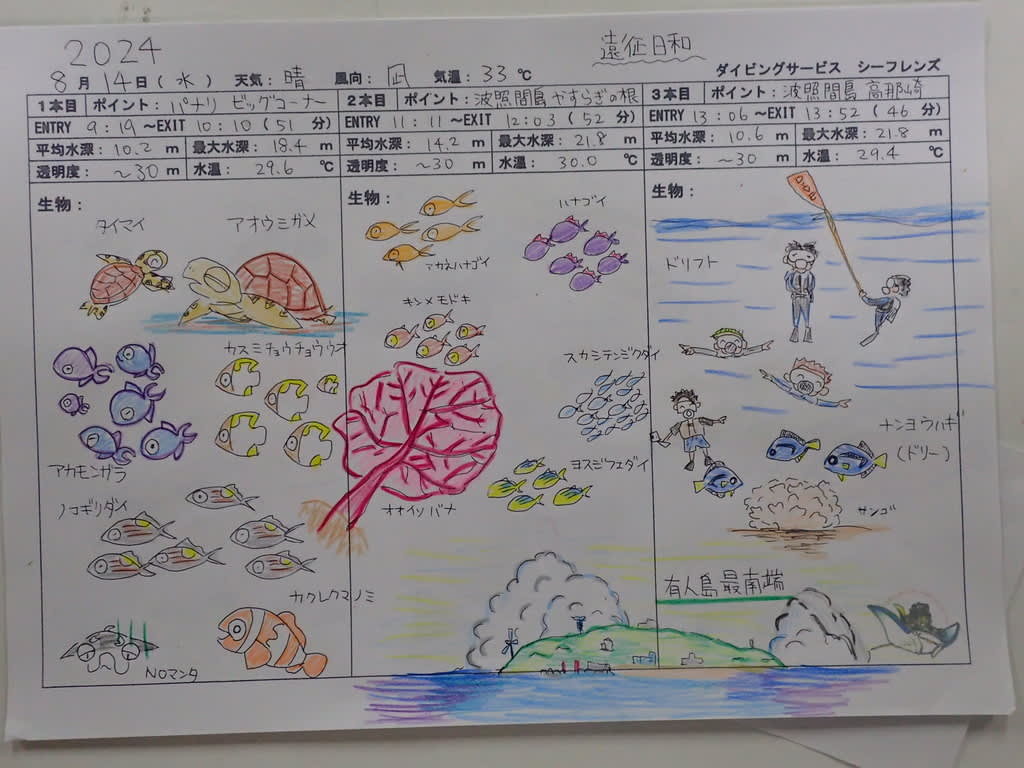 2024
遠征日和
8月14日(水) 天気:晴 風向:凪 気温:33℃
ダイビングサービス シーフレンズ
1本目 ポイント:パナリ ビッグコーナー
ENTRY 9:19~EXIT 10:10(51分)
平均水深:10.2m 最大水深:18.4m
透明度:~30m 水温:29.6℃
生物:
タイマイ
アオウミガメ
カスミチョウチョウウオ
アカモンガラ
ノコギリダイ
カクレクマノミ
NOマンタ
2本目 ポイント:波照間島やすらぎの根
ENTRY 11:11~EXIT 12:03(52分)
平均水深:14.2m 最大水深:21.8m
透明度:~30m 水温:30.0℃
生物:
ハナゴイ
アカネハナゴイ
キンメモドキ
スカシテンジクダイ
ヨスジフエダイ
オオイソバナ
3本目 ポイント:波照間島 高那崎
ENTRY 13:06~EXIT 13:52(46分)
平均水深:10.6m 最大水深:21.8m
透明度:~30m 水温:29.4℃
生物:
ドリフト
ナンヨウハギ
(ドリー)
サンゴ
有人島最南端